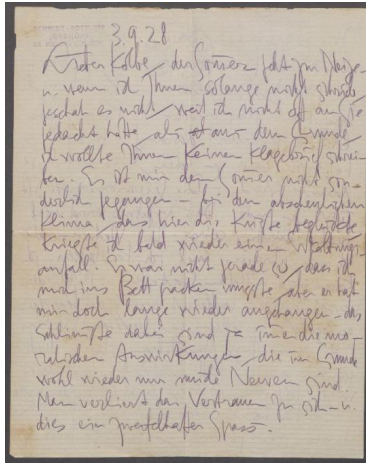 3.9.28
Lieber Kolbe, der Sommer geht zur Neige
u. wenn ich Ihnen solange nicht schrieb
geschah es nicht, weil ich nicht oft an Sie
gedacht hatte, als aus dem Grunde,
ich wollte Ihnen keinen Klagebrief schrei-
ben. Es ist mir den Sommer nicht son-
derlich gegangen – bei dem abscheulichen
Klima, das hier die Küste beglückte
kriegte ich bald wieder einen
anfall. Es war nicht gerade so, dass ich
mich ins Bett packen musste, aber er hat
mir doch lange wieder angehangen – das
Schlimmste dabei sind ja immer die mo-
ralischen Auswirkungen, die im Grunde
wohl wieder nur müde Nerven sind.
Man verliert das Vertrauen zu sich – u.
dies ein zweifelhafter Spass.